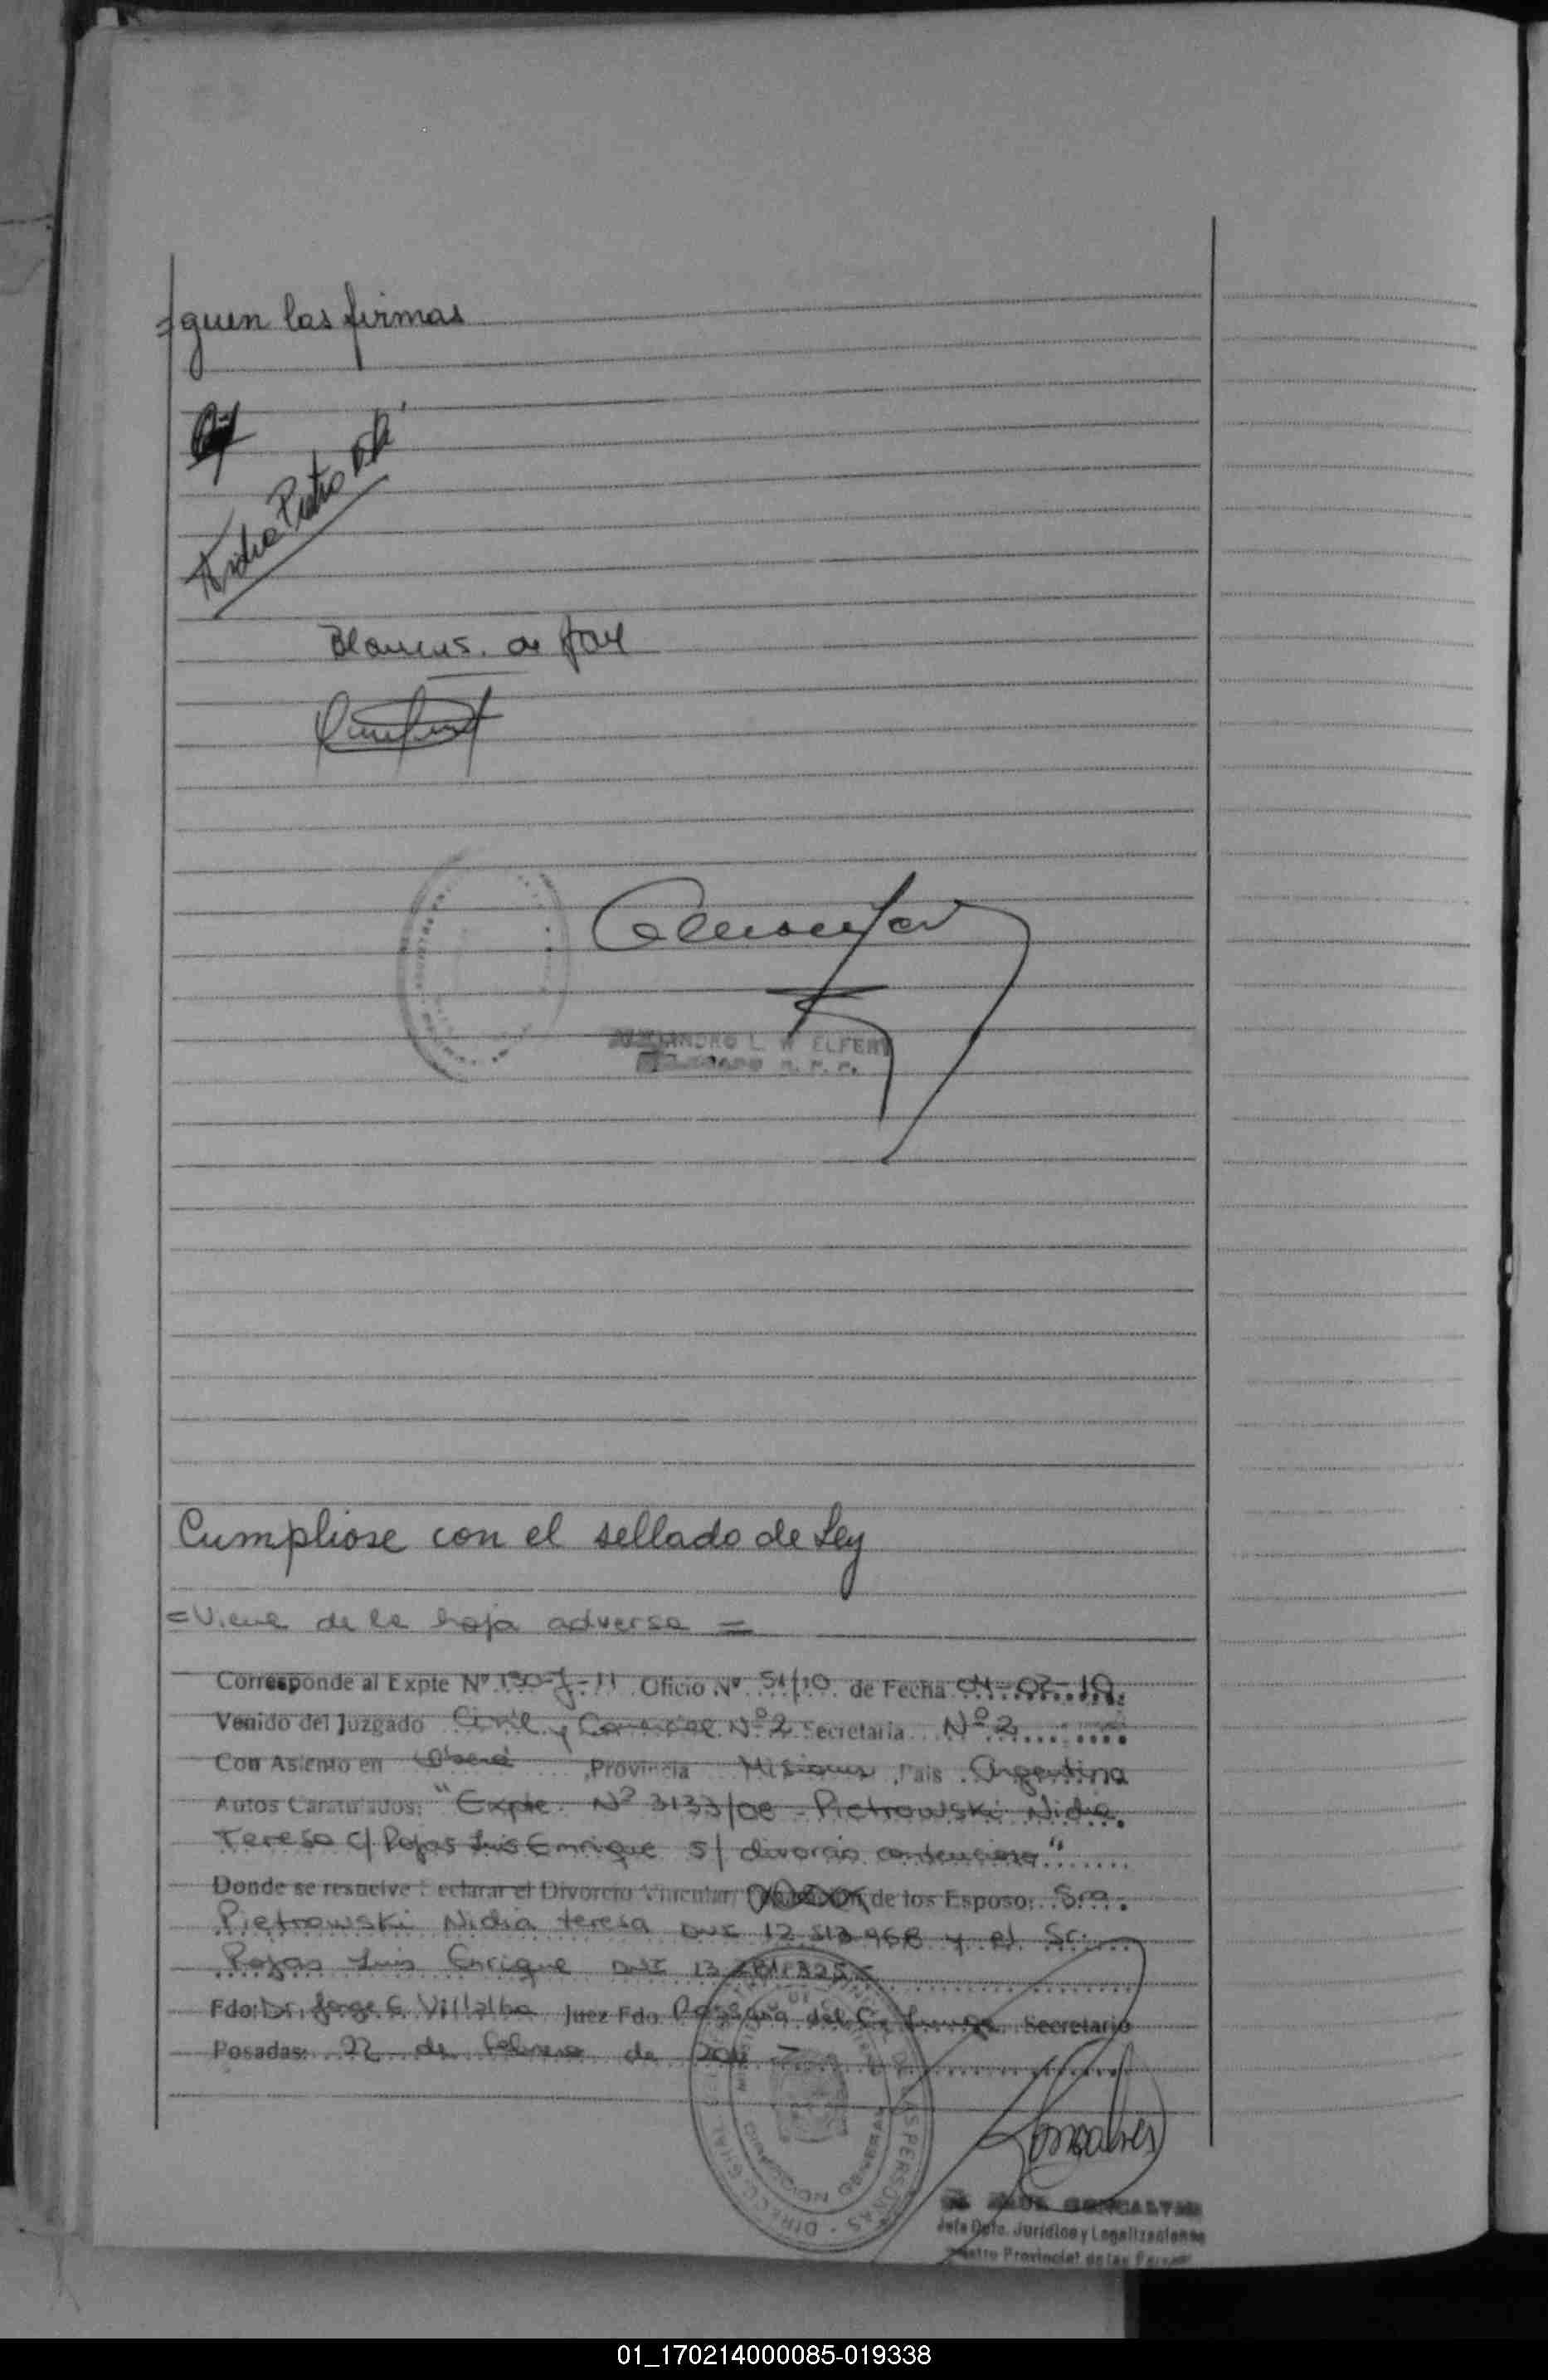 =guen las firmas
Nidia Pietrowski
Cumpliose con el sellado de Ley
=Viene de la hoja adversa=
Corresponde al Expte Nº 130-J-11 Oficio Nº 51/10 de Fecha 04-02-10
Venido del Juzgado Civil y Comercial Nº 2 Secretaria Nº 2
Con Asiento en Oberá, Provincia Misiones, Pais Argentina
Autos Caratulados: "Expte. Nº 3133/08 - Pietrowski Nidia
Teresa c/ Rojas Luis Enrique s/ divorcio contencioso"
Donde se resuelve Declarar el Divorcio Vincular, de los Esposo: Sra.
Pietrowski Nidia teresa DNI 12.513.968 y el Sr.
Rojas Luis Enrique DNI 13
Fdo: Dr. Jorge E Villalba Juez Fdo. Rossana del C. Secretario
Posadas: 22 de febrero de
GONCALVES
Jefe Dpto. Jurídico y Legalizaciones
Provincial de las
01_170214000085-019338